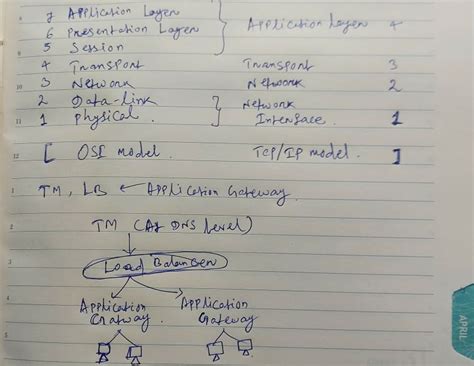 7 Application Layer } Application Layer 4
6 Presentation Layer
5 Session
4 Transport Transport 3
3 Network Network 2
2 Data-link } Network
1 Physical. Interface. 1
[ OSI model. TCP/IP model. ]
TM, LB ← Application Gateway.
TM (At DNS Level)
Load Balancer
Application Application
Gateway. Gateway
8
10
11
12
1
2
3
4
5
APRIL